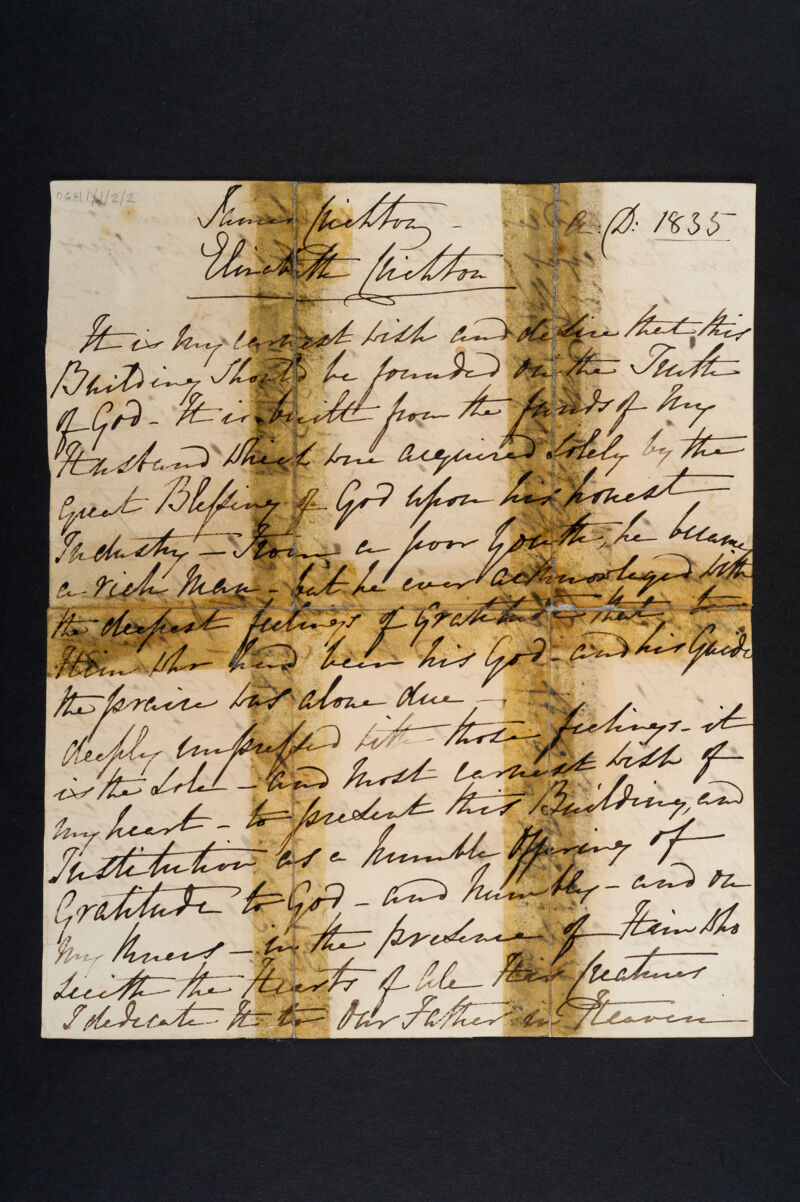 DGH1/1/2/2
James Crichton - A: D: 1835
Elizabeth Crichton
It is my earnest wish and desire that this
Building Should be founded on the Truth
of God - It is built from the funds of my
Husband which were acquired Solely by the
great Blessing of God upon his honest
Industry - From a poor Youth, he became
a rich Man - but he ever acknowleged with
the deepest feelings of Gratitude that to
Him who had been his God - and his Guide
the praise was alone due -
deeply impressed with those feelings - it
is the Sole - and most earnest wish of
my heart - to present this Building, and
Institution as a humble Offering of
Gratitude to God - and humbly - and on
my knees - in the presence of Him who
seeith the Hearts of all His Creatures
I dedicate It to Our Father in Heaven